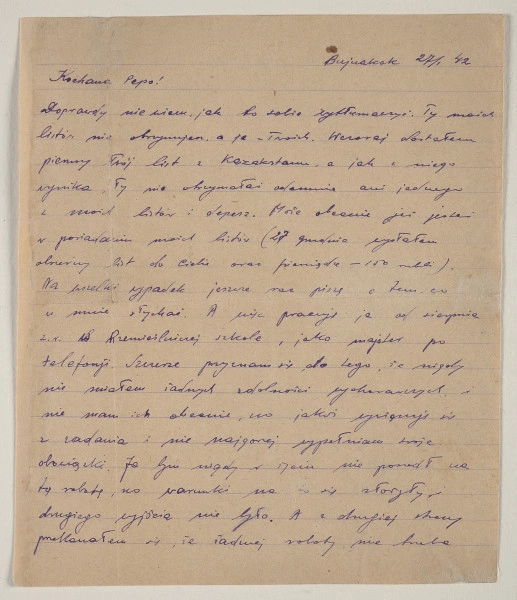 Bujnaksk 27/I 42
Kochana Pepo!
Doprawdy nie wiem, jak to sobie wytłumaczyć. Ty moich
listów nie otrzymujesz a ja - Twoich. Wczoraj dostałem
pierwszy Twój list z Kazakstanu, a jak z niego
wynika, Ty nie otrzymałaś odemnie ani jednego
z moich listów i depesz. Może obecnie już jesteś
w posiadaniu moich listów (27 grudnia wysłałem
obszerny list do Ciebie oraz pieniądze - 150 rubli).
Na wszelki wypadek jeszcze raz piszę o tem, co
u mnie słychać. A więc pracuję ja od sierpnia
z.r. w Rzemieślniczej szkole, jako majster po
telefonji. Szczerze przyznam się do tego, że nigdy
nie miałem żadnych zdolności wychowawczych i
nie mam ich obecnie, no jakoś wywiązuję się
z zadania i nie najgorzej wypełniam swoje
obowiązki. Ja bym nigdy w życiu nie poszedł na
tę robotę, no warunki na to się złożyły i
drugiego wyjścia nie było. A z drugiej strony
przekonałem się, że żadnej roboty nie trzeba